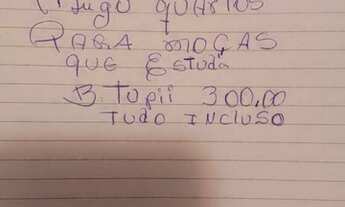 Alugo QUARTOS
PARA MOÇAS
QUE EStudA
B. Tupii 300,00
TUDO INCLUSO